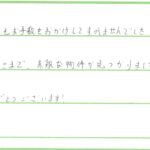 お手数をおかけしてすみませんでした
さまで、素敵な物件が見つかりまし
とうございます!